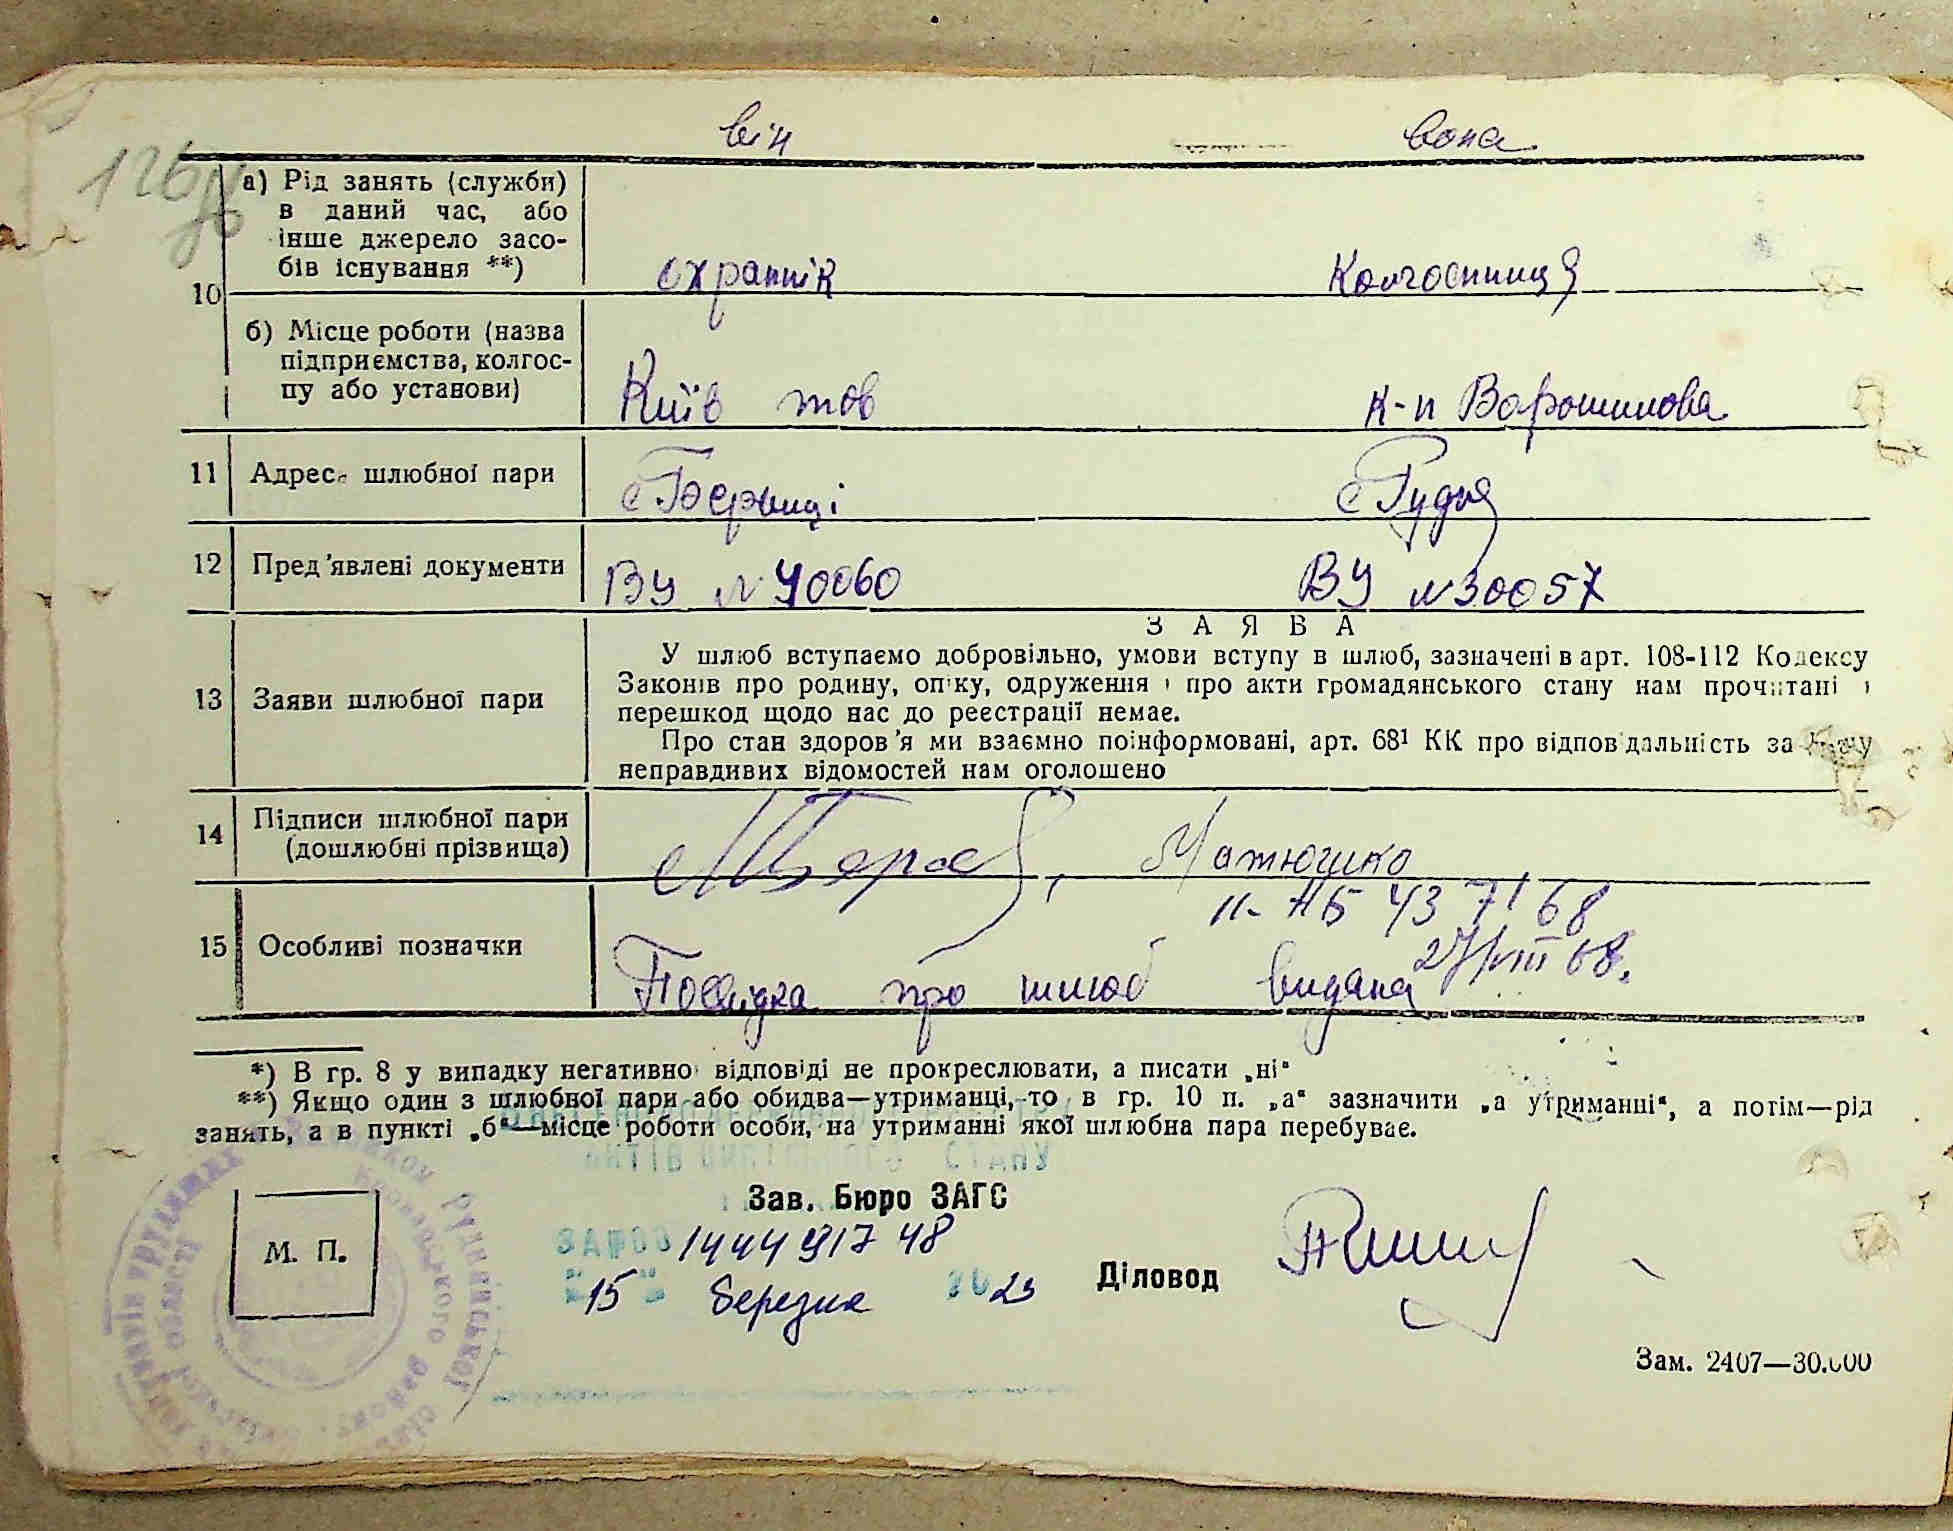 він вона
126
а) Рід занять (служби)
в даний час, або
інше джерело засо-
бів існування **)
охраннік Колгоспниця
10
б) Місце роботи (назва
підприємства, колгос-
пу або установи)
Київ тов к-п Ворошилова
11 Адреса шлюбної пари с Рудня
12 Пред'явлені документи ВУ № 40060 ВУ № 30057
ЗАЯВА
У шлюб вступаємо добровільно, умови вступу в шлюб, зазначені в арт. 108-112 Кодексу
Законів про родину, опіку, одруження і про акти громадянського стану нам прочитані і
перешкод щодо нас до реєстрації немає.
13 Заяви шлюбної пари
Про стан здоров'я ми взаємно поінформовані, арт. 68¹ КК про відповідальність за дачу
неправдивих відомостей нам оголошено
14 Підписи шлюбної пари
(дошлюбні прізвища)
Матюшко
п- АБ 43 7168
15 Особливі позначки
27/VIII 68.
Посвідка про шлюб видана
*) В гр. 8 у випадку негативної відповіді не прокреслювати, а писати „ні“
**) Якщо один з шлюбної пари або обидва—утриманці, то в гр. 10 п. „а“ зазначити „а утриманні“, а потім—рід
занять, а в пункті „б“—місце роботи особи, на утриманні якої шлюбна пара перебуває.
АКТІВ ЦИВІЛЬНОГО СТАНУ
Зав. Бюро ЗАГС
М. П.
15 березня 2023
Діловод
Зам. 2407—30.000